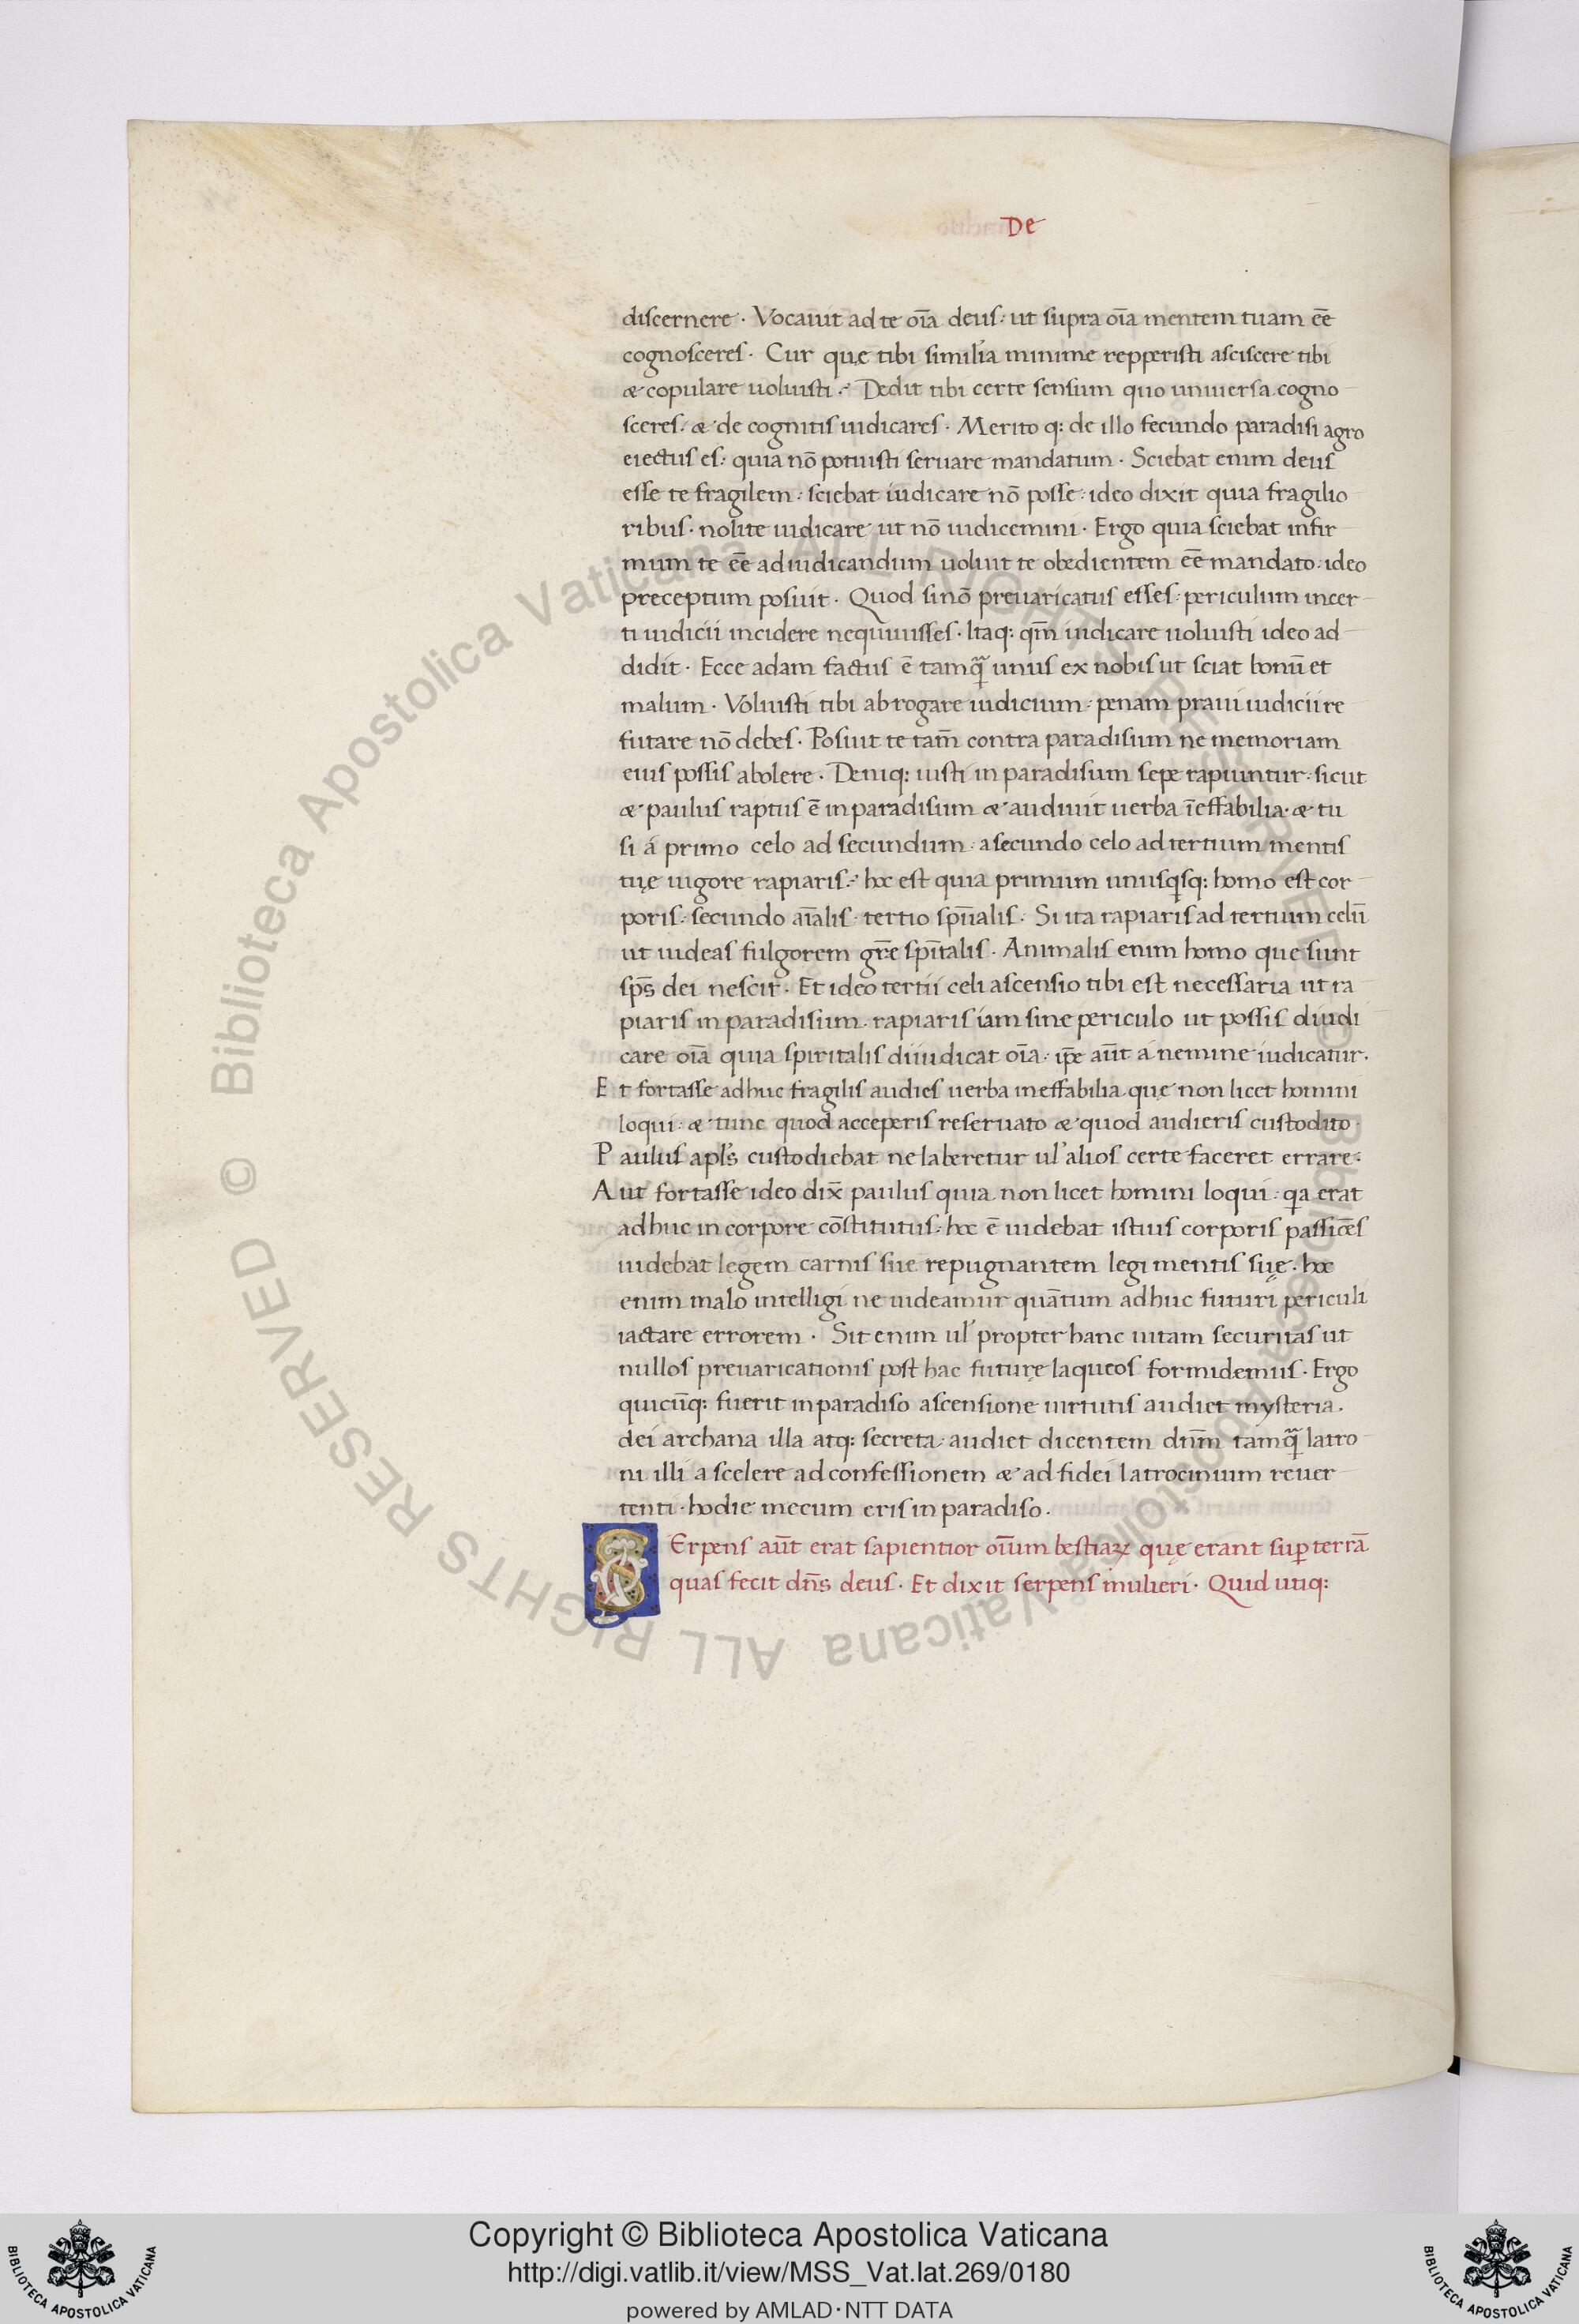 De
discernere · Vocauit ad te oīa deus : ut supra oīa mentem tuam eē
cognosceres · Cur quę tibi similia minime repperisti asciscere tibi
& copulare uoluisti · Dedit tibi certe sensum quo uniuersa cogno
sceres : & de cognitis iudicares · Merito q: de illo fecundo paradisi agro
eiectus es : quia nō potuisti seruare mandatum · Sciebat enim deus
esse te fragilem : sciebat iudicare nō posse : ideo dixit quia fragilio
ribus · nolite iudicare ut nō iudicemini · Ergo quia sciebat infir
mum te eē ad iudicandum uoluit te obedientem eē mandato : ideo
preceptum posuit · Quod si nō preuaricatus esses : periculum incer
ti iudicii incidere nequiuisses · Itaq: qm̄ iudicare uoluisti ideo ad
didit · Ecce adam factus ē tamq̄ unus ex nobis ut sciat bonū et
malum · Voluisti tibi abrogare iudicium : penam praui iudicii re
futare nō debes · Posuit te tam̄ contra paradisum ne memoriam
eius possis abolere · Deniq: iusti in paradisum sepe rapiuntur : sicut
& paulus raptus ē in paradisum & audiuit uerba īeffabilia · & tu
si á primo celo ad secundum · a secundo celo ad tertium mentis
tuę uigore rapiaris : hoc est quia primum unusqsq: homo est cor
poris : secundo aīalis · tertio spūalis · Si ita rapiaris ad tertium celū
ut uideas fulgorem gr̄e spītalis · Animalis enim homo que sunt
sp̄s dei nescit · Et ideo tertii celi ascensio tibi est necessaria ut ra
piaris in paradisum · rapiaris iam sine periculo ut possis diudi
care oīa quia spiritalis diiudicat oīa · ip̄e aūt á nemine iudicatur ·
Et fortasse adhuc fragilis audies uerba ineffabilia quę non licet homini
loqui : & tunc quod acceperis reseruato & quod audieris custodito ·
Paulus apl's custodiebat ne laberetur ul' alios certe faceret errare ·
Aut fortasse ideo dix̄ paulus quia non licet homini loqui : qa erat
adhuc in corpore cōstitutus : hoc ē uidebat istius corporis passiōes
uidebat legem carnis sue repugnantem legi mentis suę · hoc
enim malo intelligi ne uideamur quātum adhuc futuri periculi
iactare errorem · Sit enim ul' propter hanc uitam securitas ut
nullos preuaricationis post hac futurę laqueos formidemus · Ergo
quicūq: fuerit in paradiso ascensione uirtutis audiet mysteria ·
dei archana illa atq: secreta · audiet dicentem dnm̄ tamq̄ latro
ni illi a scelere ad confessionem & ad fidei latrocinium reuer
tenti · hodie mecum eris in paradiso ·
SErpens aūt erat sapientior oīum bestiaꝝ quę erant sup terrā
quas fecit dn̄s deus · Et dixit serpens mulieri · Quid utiq:
Copyright © Biblioteca Apostolica Vaticana
http://digi.vatlib.it/view/MSS_Vat.lat.269/0180
powered by AMLAD·NTT DATA
BIBLIOTECA APOSTOLICA VATICANA
BIBLIOTECA APOSTOLICA VATICANA
© Biblioteca Apostolica Vaticana ALL RIGHTS RESERVED © Biblioteca Apostolica Vaticana ALL RIGHTS RESERVED